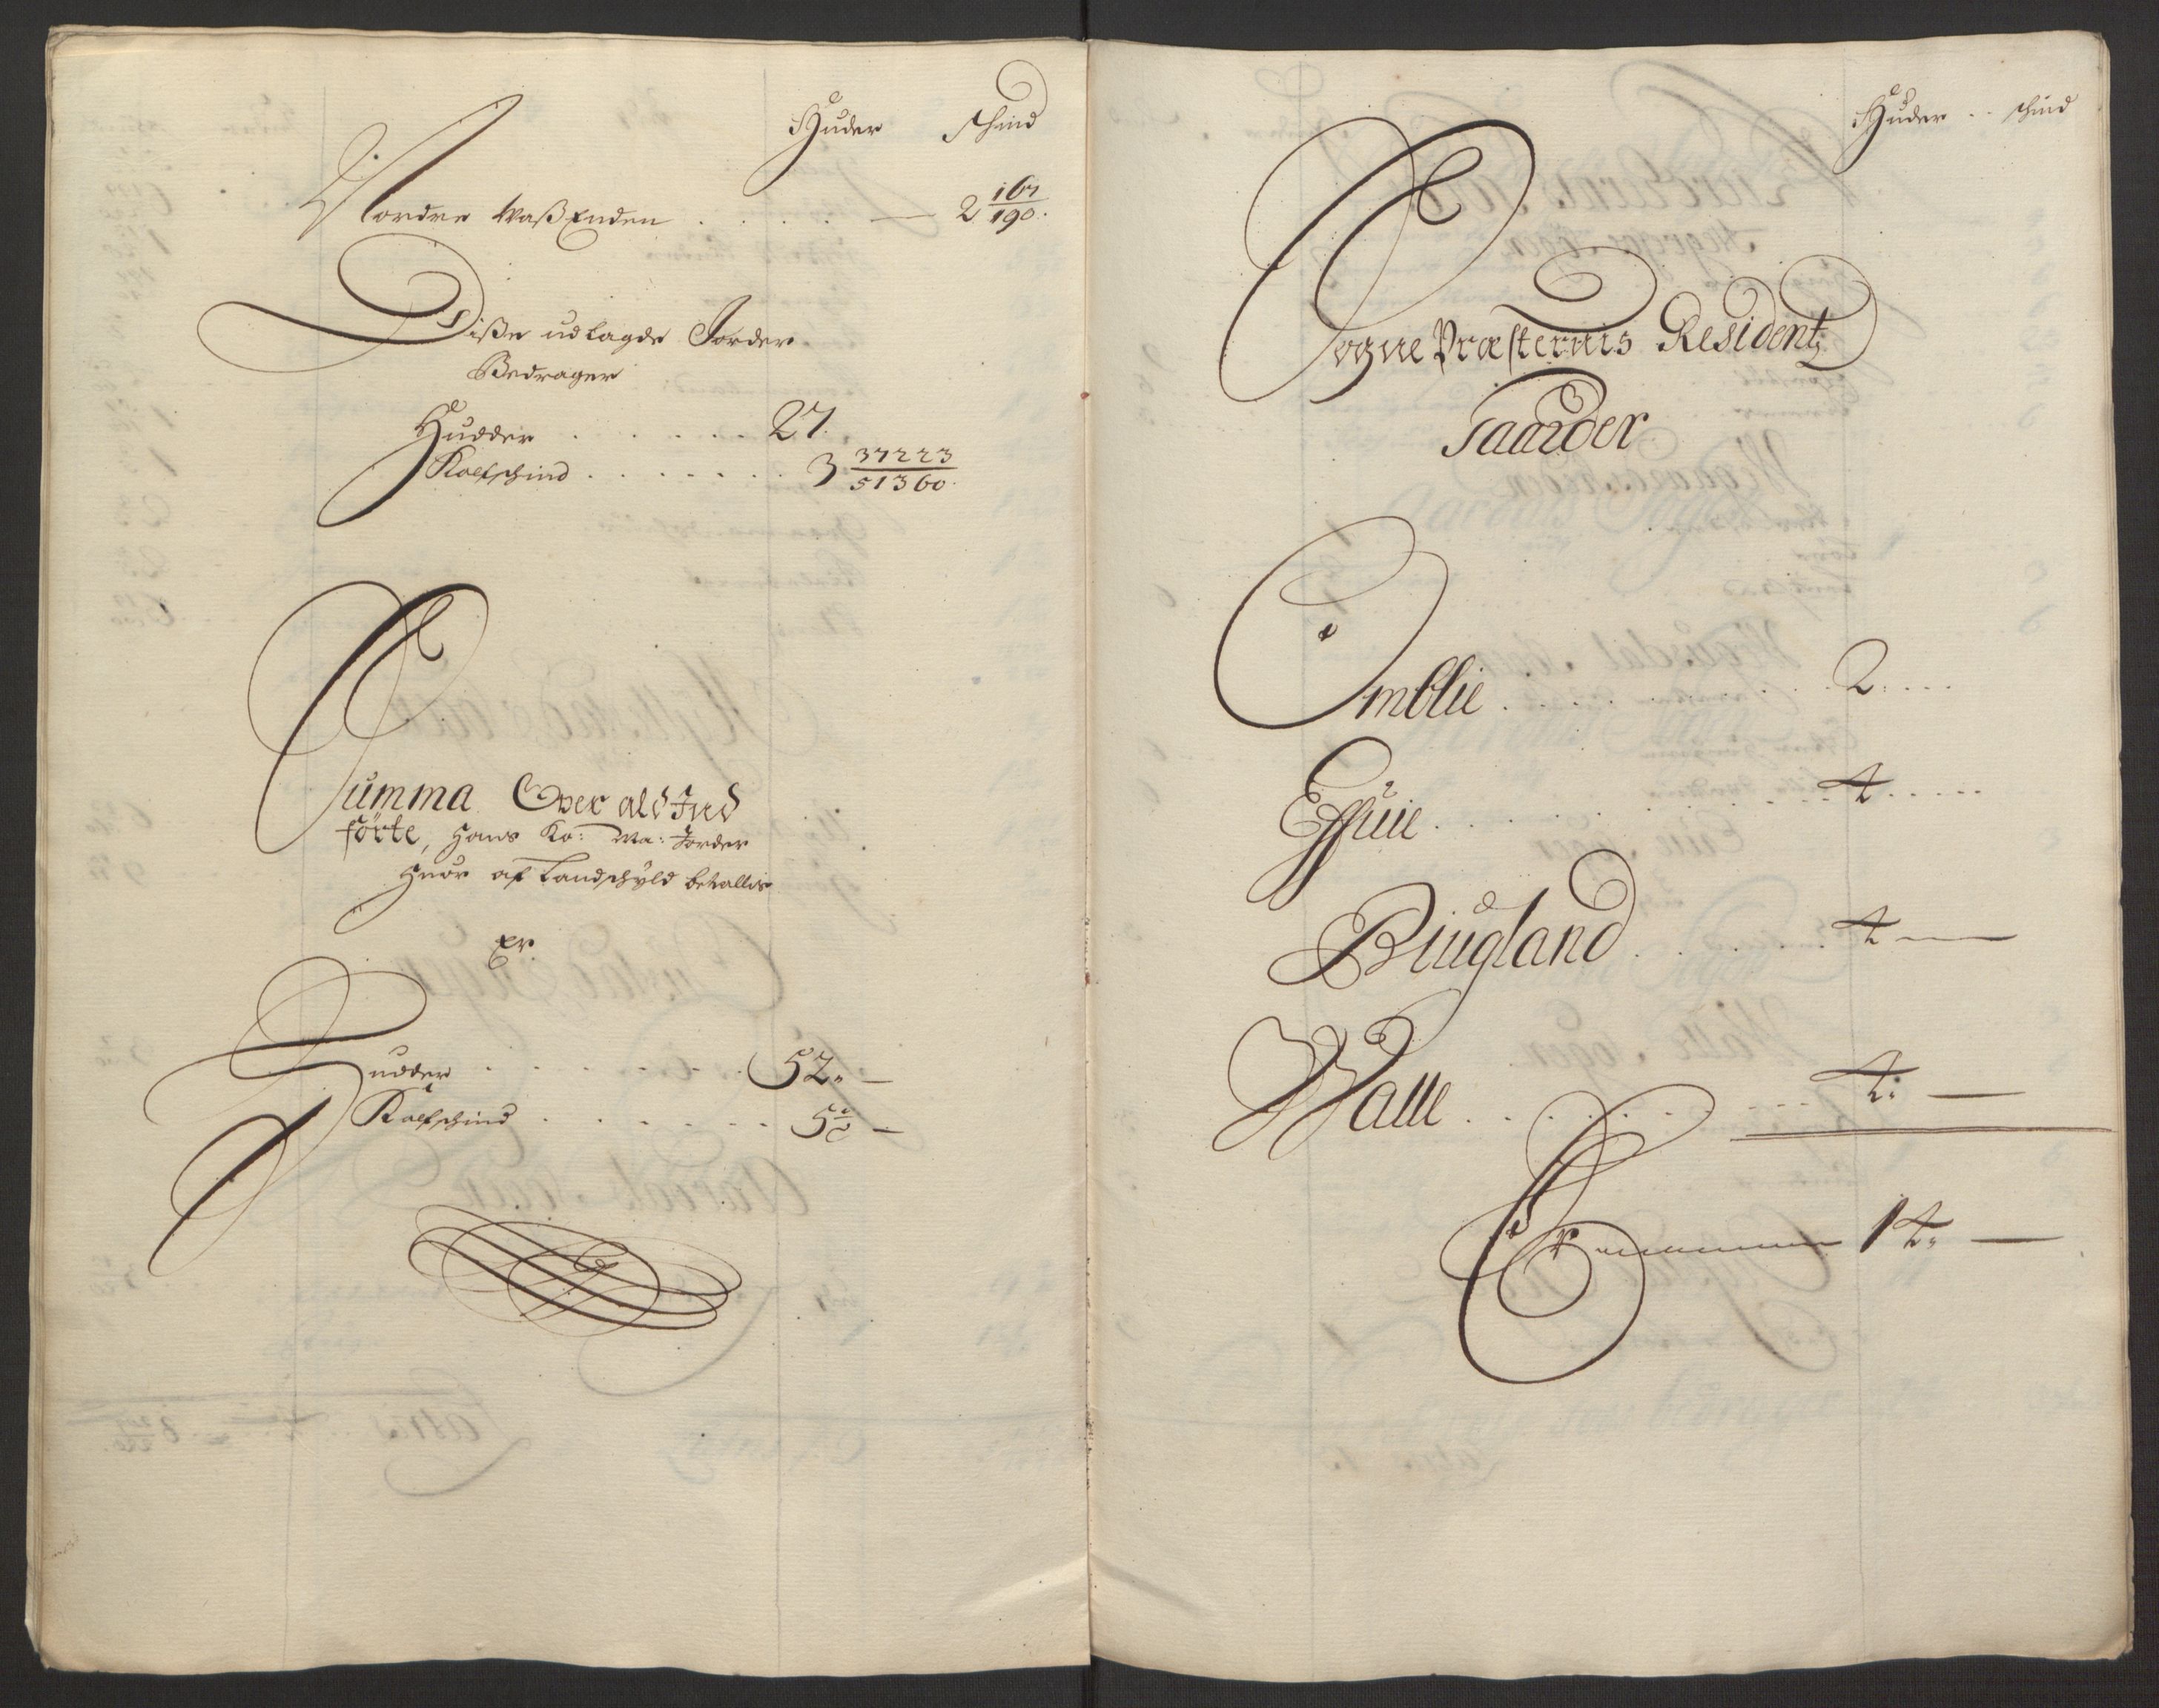 Huder schind
Nordre Waßenden . . . . — 2 167/190.
Diße udlagde Jorder
Bedrager
Hudder . . . . . . 27.
Kalfschind . . . . . . . 3 37223/51360.
Summa Over ald Ind
förte, Hans Ko: Ma: Jorder
huor af Landschyld betallis
er
Hudder . . . . . . . 52. —
Kalfschind . . . . . . —
Huder . . schind
Sogne Præsternis Residentz
Gaarder
Omblie . . . . . . . . . 2. . . .
Effuie . . . . . . . . . 4. . . . .
Biugland . . . . . . 4 —
Walle . . . . . . . . . 4: —
Er 14. —